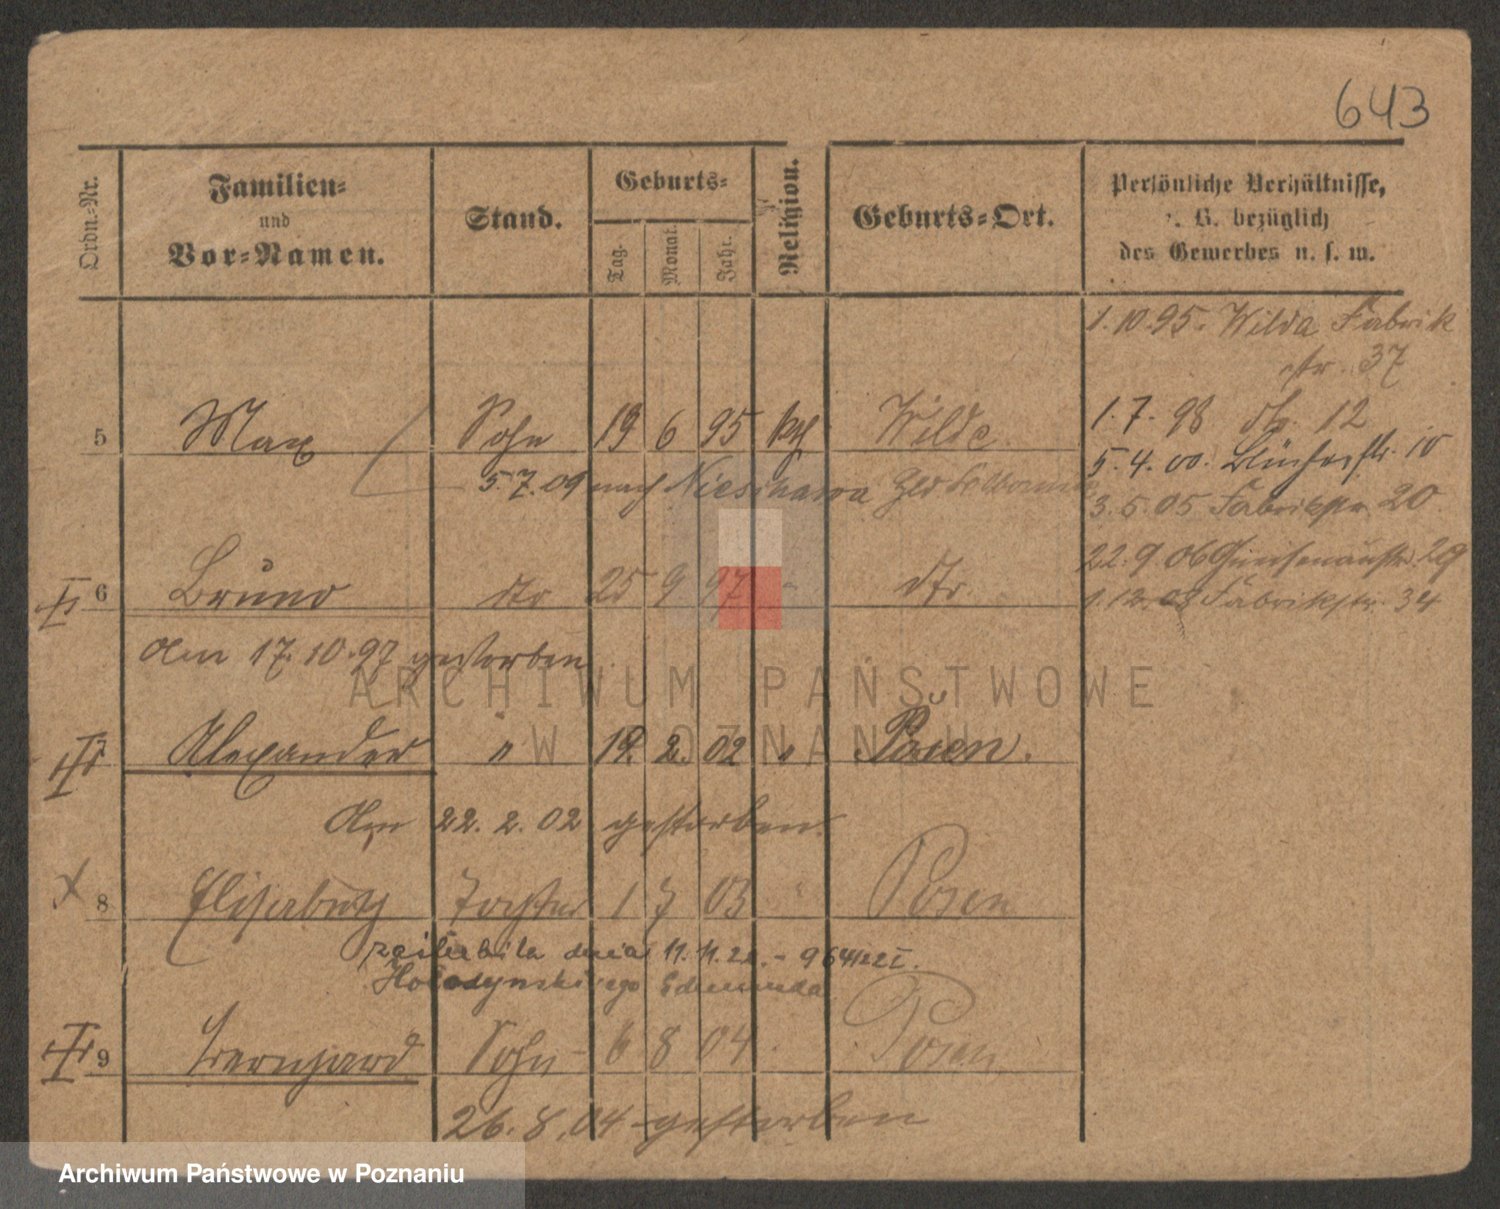 643
Ordn.-Nr.
Familien-
und
Vor-Namen.
Stand.
Geburts-
Tag.
Monat.
Jahr.
Religion.
Geburts-Ort.
Persönliche Verhältnisse,
z. B. bezüglich
des Gewerbes u. s. w.
1.10.95. Wilda Fabrik
str. 37
5 Max Sohn 19 6 95 kth Wilda
1.7.98 do. 12
5.4.00. Blücherstr. 10
5.7.09 nach
3.5.05 Fabrikstr 20
22.9.06 Gneisenaustr. 29
6 Bruno dto 25 9 97 " dto
1.12.08 Fabrikstr. 34
am 17.10.97 gestorben
7 Alexander " 19. 2. 02 " Posen.
Am 22.2.02 gestorben.
8 Elisabeth Tochter 1 7 03 " Posen
dnia 11.11.22. -
9 Bernhard Sohn 6 8 04 Posen
26.8.04 gestorben
ARCHIWUM PAŃSTWOWE
W POZNANIU
Archiwum Państwowe w Poznaniu